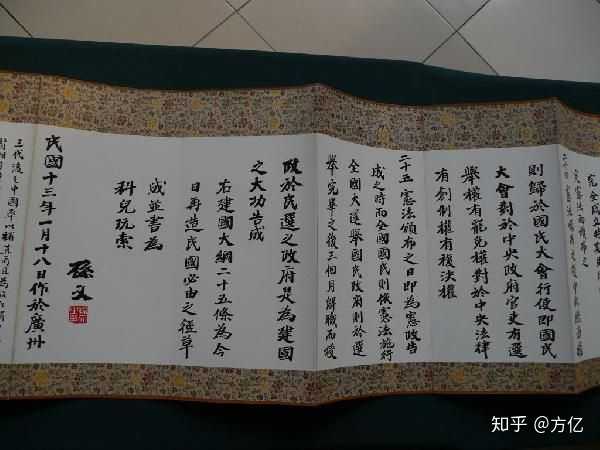 則歸於國民大會行使即國民
大會對於中央政府官吏有選
舉權有罷免權對於中央法律
有創制權有複決權
二十五憲法頒布之日即為憲政告
成之時而全國國民則依憲法施行
全國大選舉國民政府則於選
舉完畢之後三個月解職而授
政於民選之政府是為建國
之大功告成
右建國大綱二十五條為今
日再造民國必由之徑草
成並書為
科兒玩索
民國十三年一月十八日作於廣州
孫文
知乎 @方亿